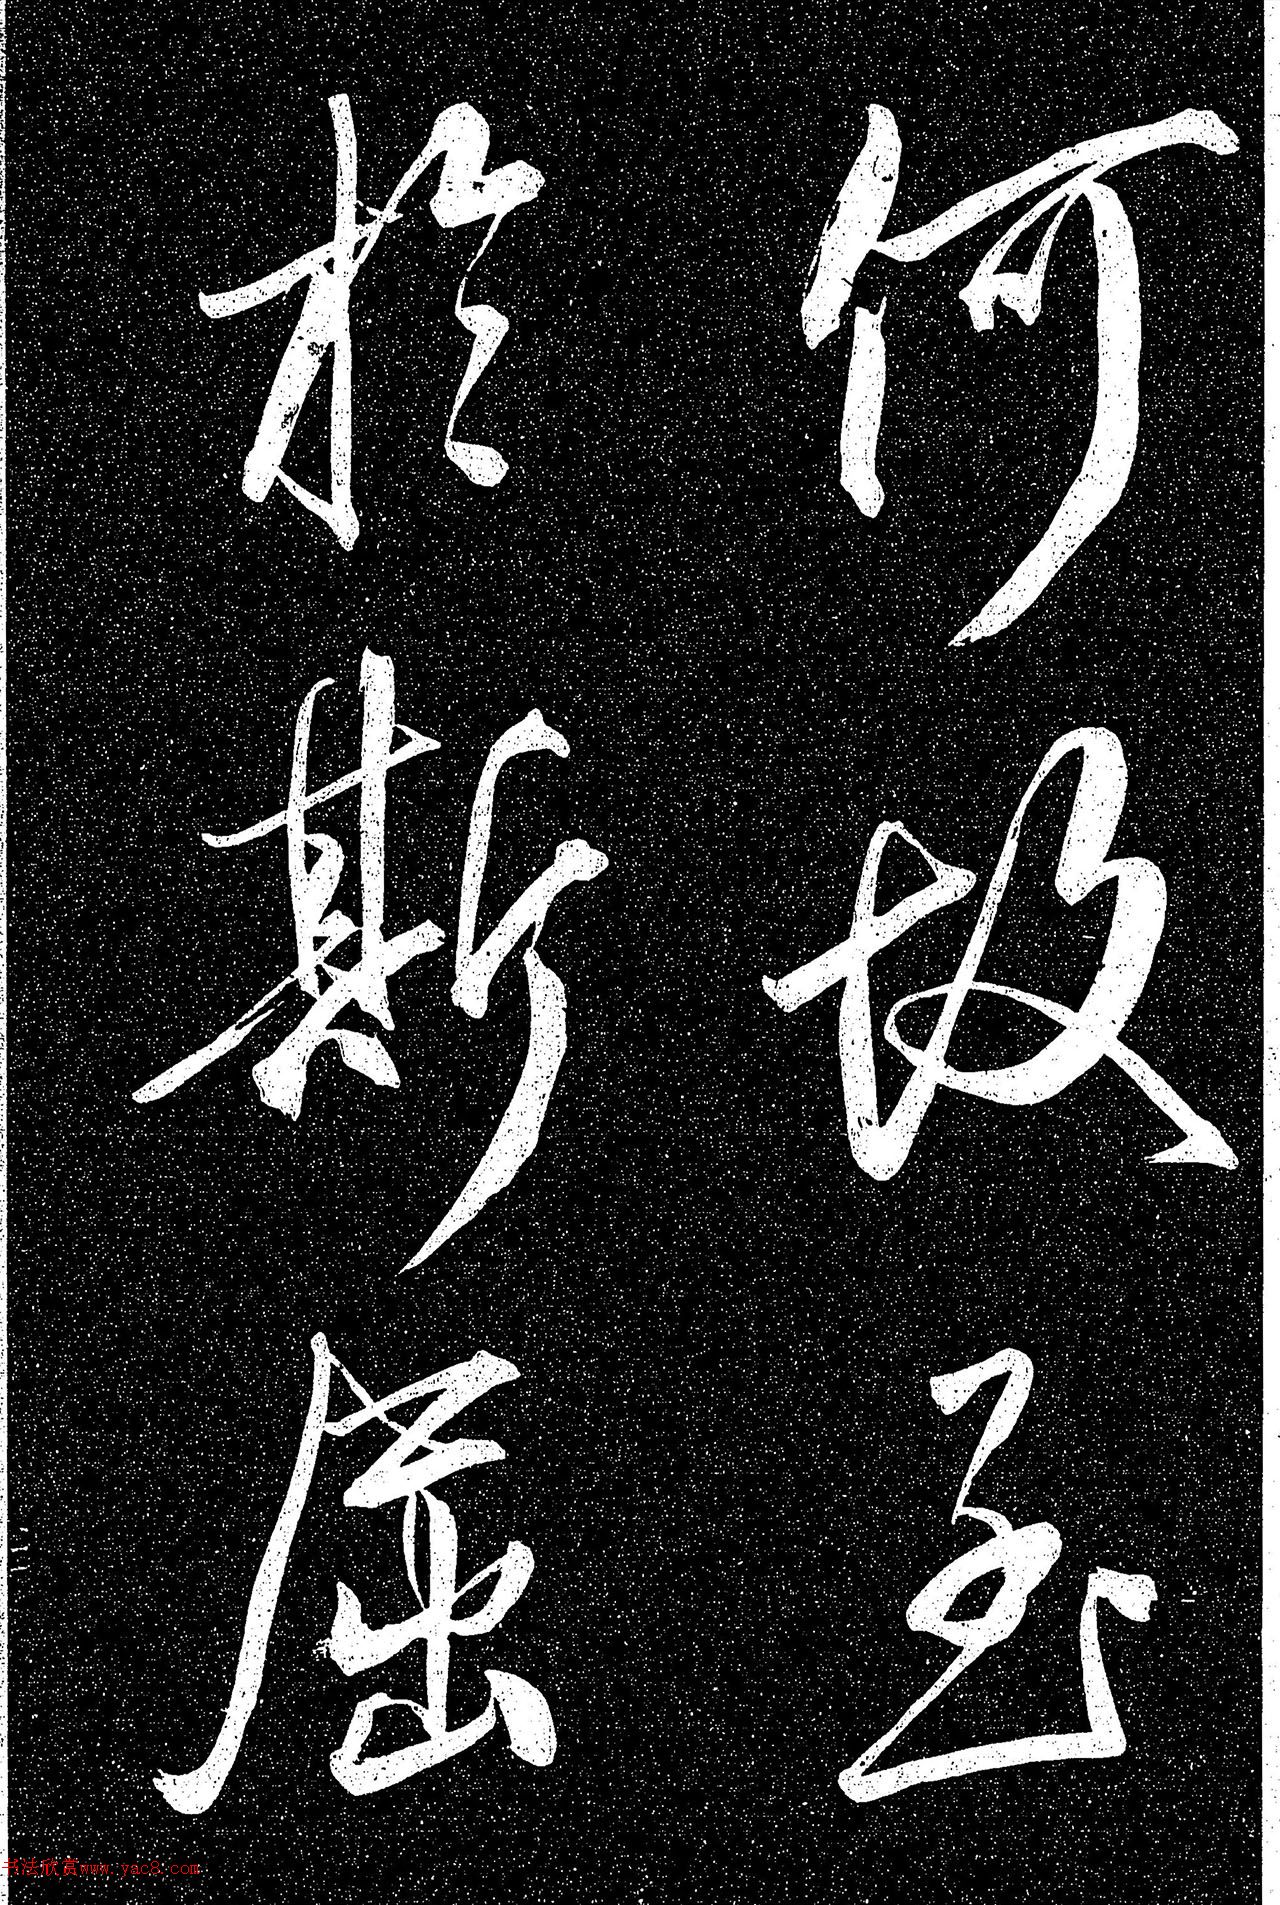 何故至
於斯屈
书法欣赏www.yac8.com